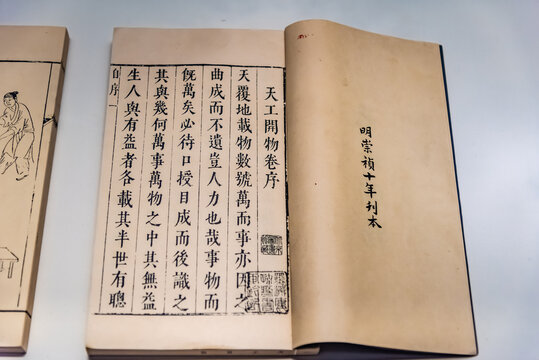 明崇禎十年刊本
天工開物卷序
天覆地載物數號萬而事亦因之
曲成而不遺豈人力也哉事物而
旣萬矣必待口授目成而後識之
其與幾何萬事萬物之中其無益
生人與有益者各載其半世有聰
序